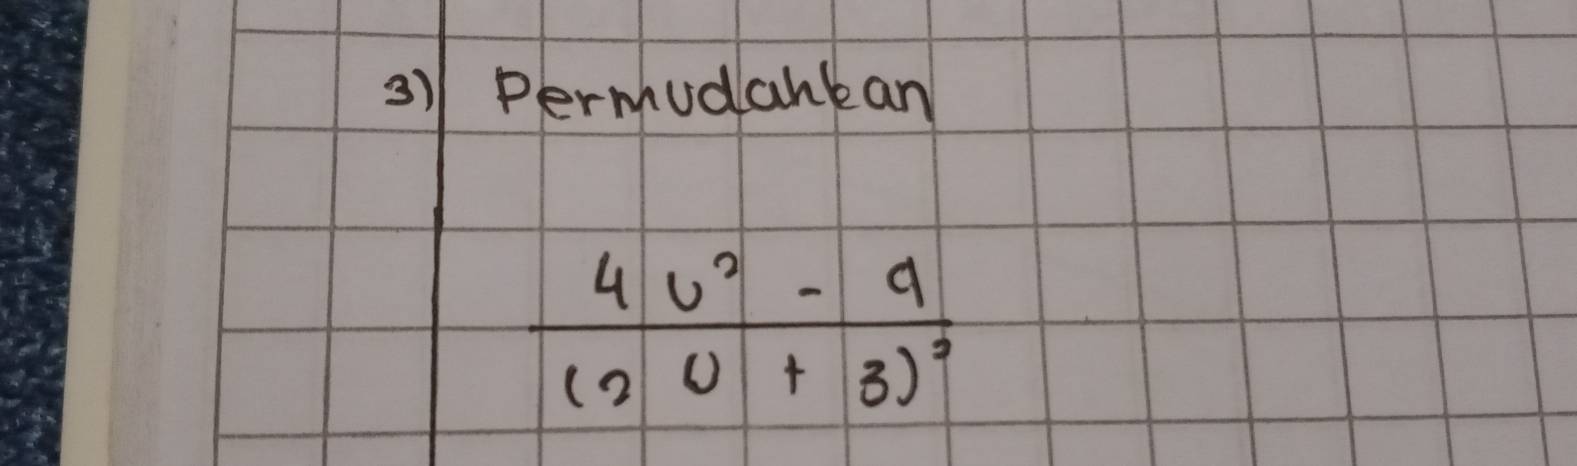 3) Permudahkan
4u² - 9
(2u + 3)²